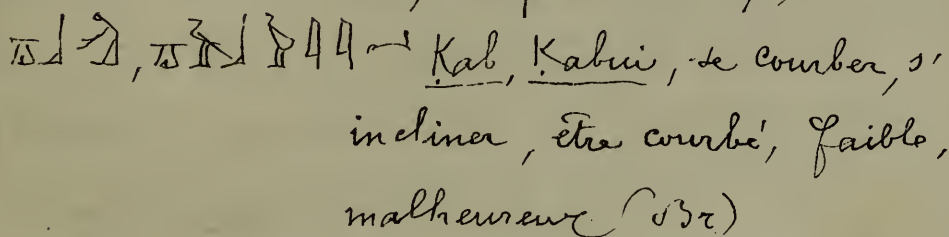 Kab, Kabui, se courber, s'
incliner, être courbé, faible,
malheureux (Br)